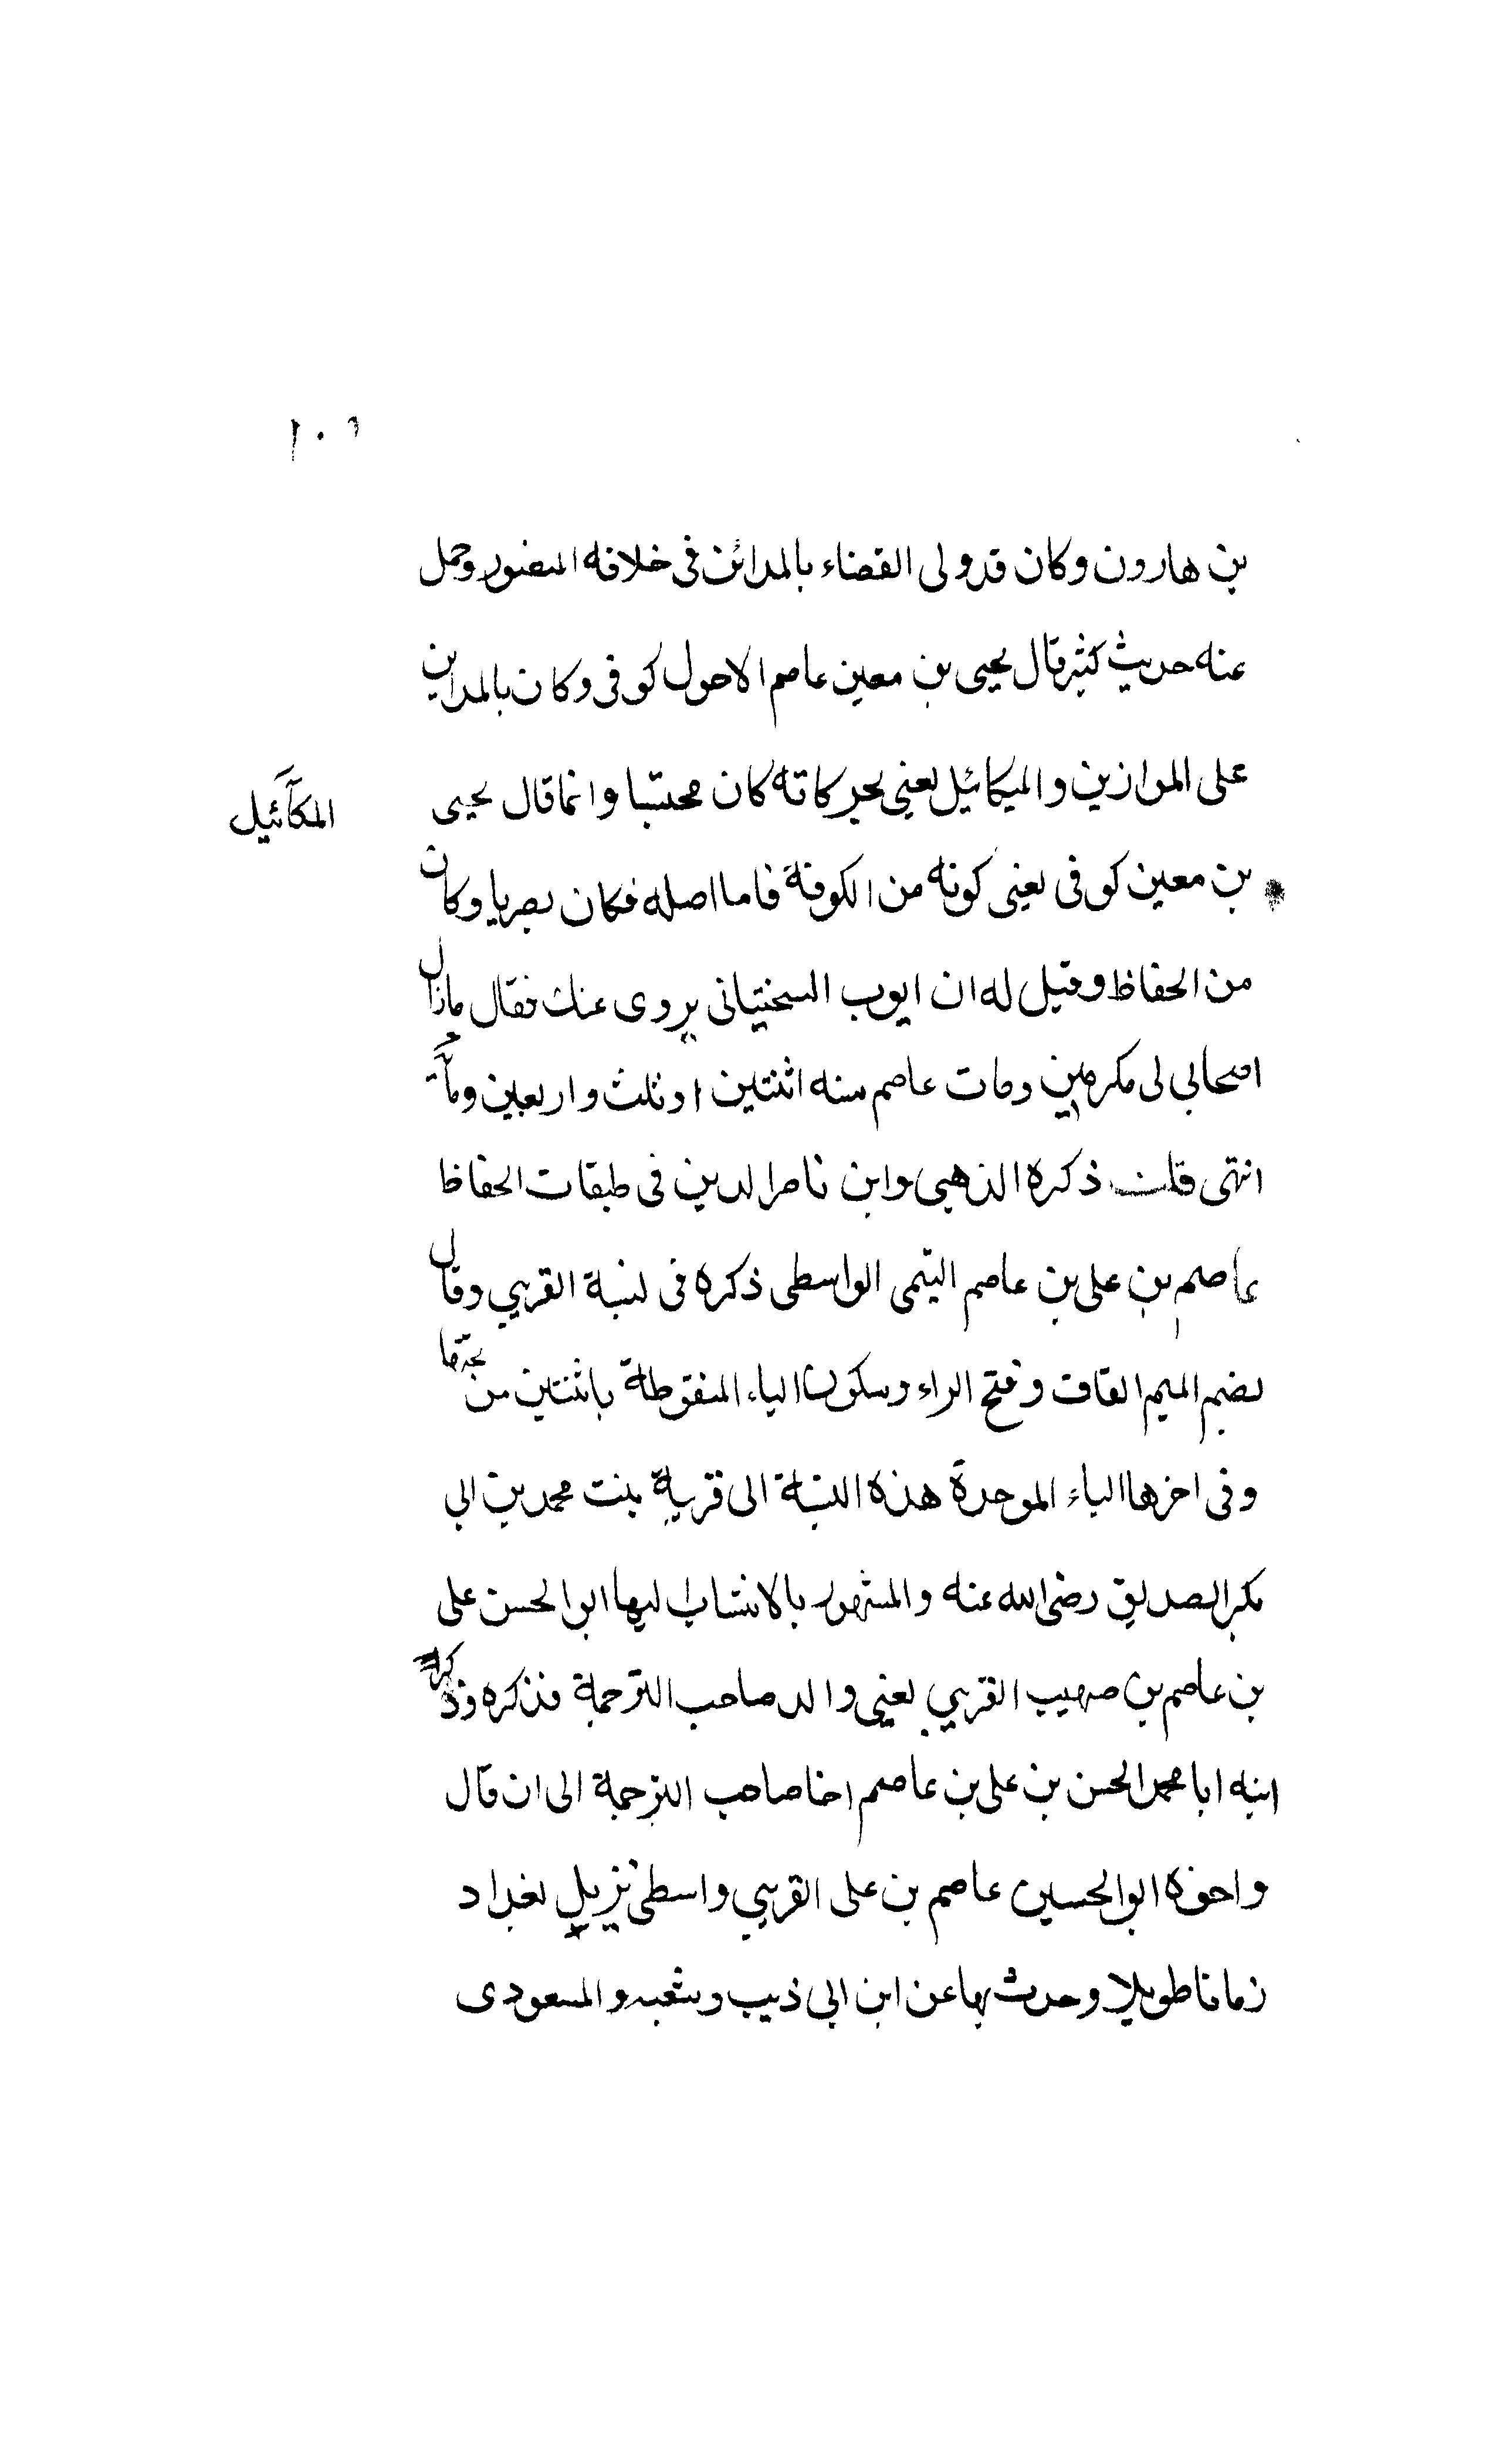 ١٠٦
بن هارون وكان قد ولى القضاء بالمدائن فى خلافه المنصور وحمل
عنه حديث كثير قال يحيى بن معين عاصم الاحول كوفى وكان بالمداين
على الموازين والميكائيل يعنى بحر كاته كان محتسبا وانما قال يحيى
المكآئيل
بن معين كوفى يعنى كونه من الكوفة فاما اصله فكان بصريا وكان
من الحفاظ وقيل له ان ايوب السختيانى يروى عنك فقال مازال
اصحابى لى مكرمين ومات عاصم سنه اثنتين او ثلث واربعين ومأة
انتهى قلت ذكره الذهبى وابن ناصر الدين فى طبقات الحفاظ
عاصم بن على بن عاصم التيمى الواسطى ذكره فى نسبة القريبى وقال
بضم الميم القاف وفتح الراء وسكون الياء المنقوطة باثنتين من تحتها
وفى اخرها الباء الموحدة هذه النسبة الى قريبة بنت محمد بن ابى
بكر الصديق رضى الله عنه والمشهور بالانتساب اليها ابو الحسن على
بن عاصم بن صهيب القريبى يعنى والد صاحب الترجمة فذكره وذكر
ابنه ابا محمد الحسن بن على بن عاصم اخا صاحب الترجمة الى ان قال
واخوه ابو الحسين عاصم بن على القريبى واسطى نزيل بغداد
زمانا طويلا وحدث بها عن ابن ابى ذيب وشعبه والمسعودى